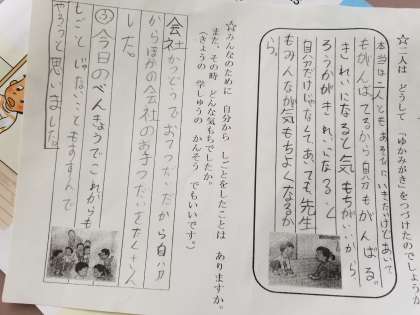 ☆二人は どうして「ゆかみがき」をつづけたのでしょうか
本当は二人とも
もがんばってるから自分もがんばる。
きれいになると気もちがいいから
ろうかがきれいになると
自分だけじゃなくて、あても先生
もみんなが気もちよくなるか
ら。
☆みんなのために 自分から しごとをしたことは ありますか。
また、その時 どんな気もちでしたか。
（きょうの 学しゅうの かんそう でもいいです。）
会社かつどうでおてつだいだから自分
からほかの会社のお手つだいをたくさん
した。
③今日のべんきょうでこれからも
しごとじゃないこともすすんで
やろうと思いました。